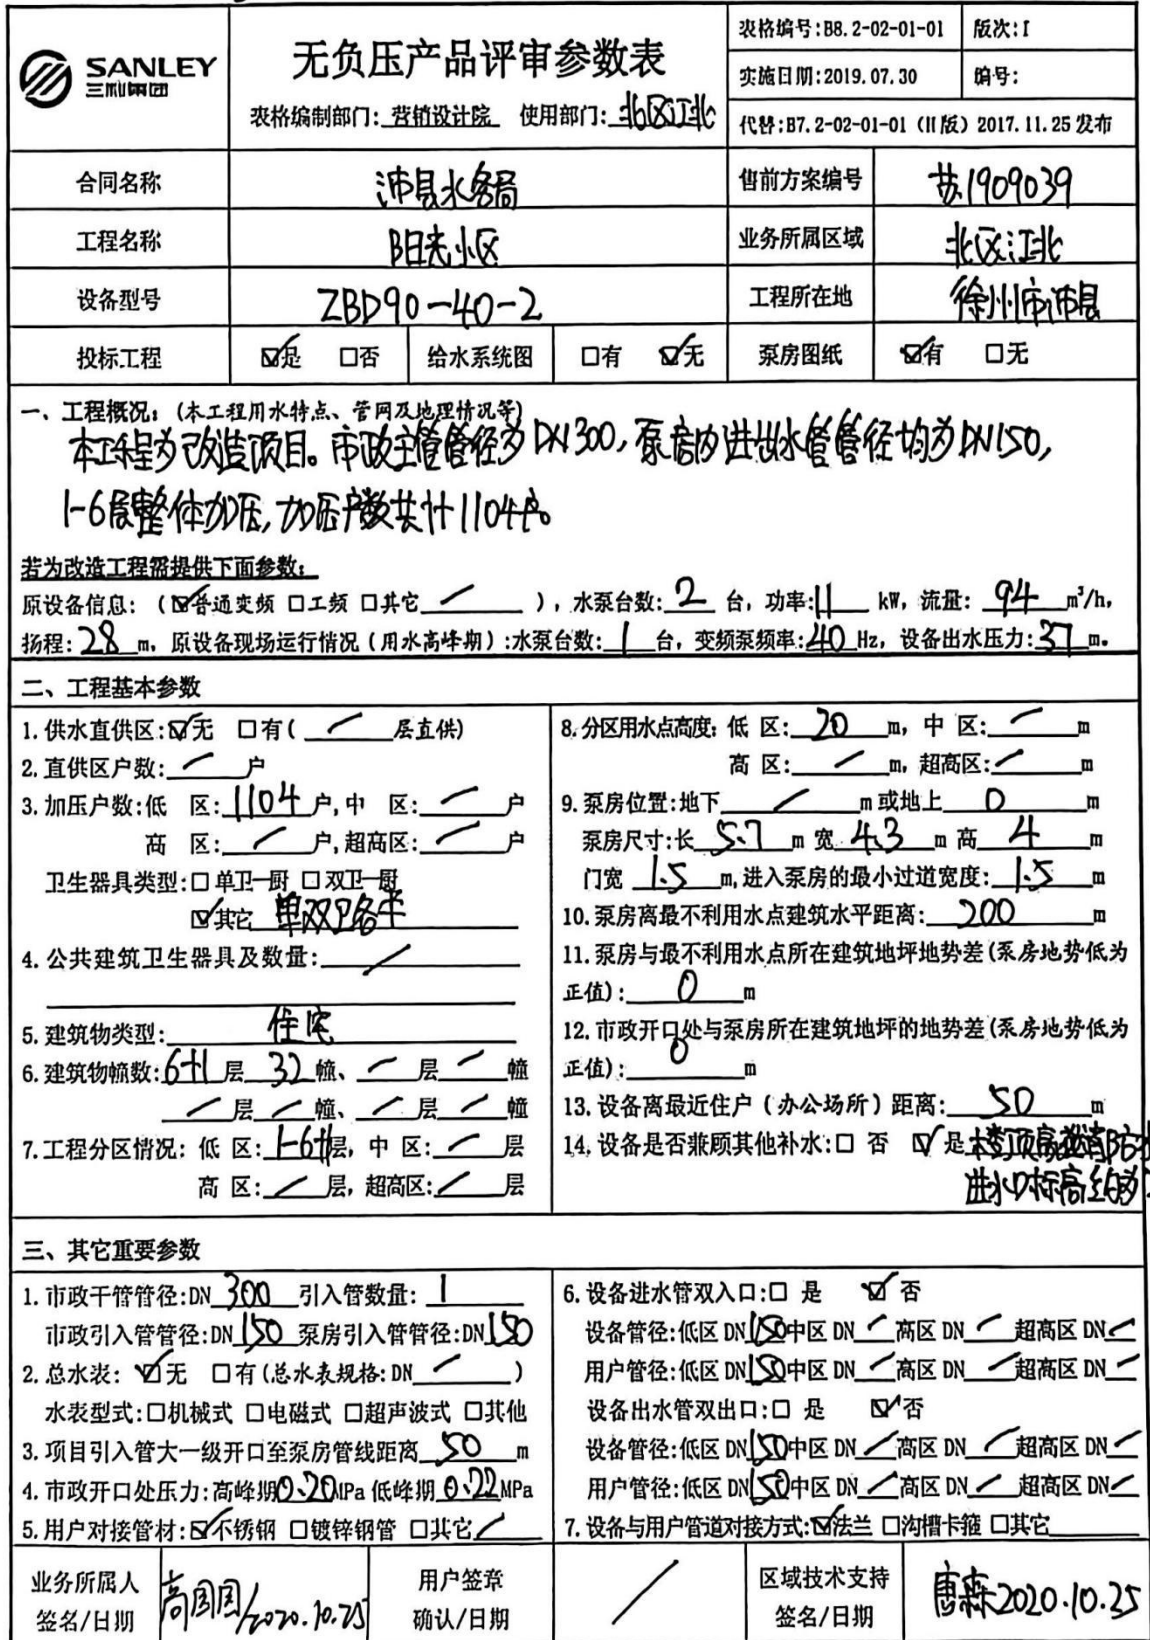 SANLEY
三利集团
无负压产品评审参数表
表格编制部门：营销设计院 使用部门：北区江北
表格编号:B8.2-02-01-01 版次:I
实施日期:2019.07.30 编号:
代替:B7.2-02-01-01（II版）2017.11.25发布
合同名称 沛县水务局 售前方案编号 苏1909039
工程名称 阳光小区 业务所属区域 北区江北
设备型号 ZBD90-40-2 工程所在地 徐州市沛县
投标工程 ☑是 □否 给水系统图 □有 ☑无 泵房图纸 ☑有 □无
一、工程概况：(本工程用水特点、管网及地理情况等)
本工程为改造项目。市政主管管径为DN300，泵房内进出水管管径均为DN150，
1-6层整体加压，加压户数共计1104户。
若为改造工程需提供下面参数：
原设备信息：（☑普通变频 □工频 □其它 / ），水泵台数：2 台，功率：11 kW，流量：94 m³/h，
扬程：28 m，原设备现场运行情况（用水高峰期）:水泵台数：1 台，变频泵频率：40 Hz，设备出水压力：37 m。
二、工程基本参数
1.供水直供区:☑无 □有( / 层直供)
2.直供区户数: / 户
3.加压户数:低 区:1104户,中 区: / 户
高 区: / 户,超高区: / 户
卫生器具类型:□单卫一厨 □双卫一厨
☑其它 单双卫各半
4.公共建筑卫生器具及数量: /
5.建筑物类型: 住宅
6.建筑物幢数:6+1层 32 幢、 / 层 / 幢
/ 层 / 幢、 / 层 / 幢
7.工程分区情况：低 区:1-6+1层，中 区: / 层
高 区: / 层，超高区: / 层
8.分区用水点高度：低 区: 20 m，中 区: / m
高 区: / m，超高区: / m
9.泵房位置:地下 / m或地上 0 m
泵房尺寸:长 5.7 m 宽 4.3 m 高 4 m
门宽 1.5 m,进入泵房的最小过道宽度: 1.5 m
10.泵房离最不利用水点建筑水平距离: 200 m
11.泵房与最不利用水点所在建筑地坪地势差(泵房地势低为
正值): 0 m
12.市政开口处与泵房所在建筑地坪的地势差(泵房地势低为
正值): 0 m
13.设备离最近住户（办公场所）距离: 50 m
14.设备是否兼顾其他补水:□ 否 ☑ 是 楼顶高位消防水
进水口标高约为
三、其它重要参数
1.市政干管管径:DN 300 引入管数量: 1
市政引入管管径:DN 150 泵房引入管管径:DN 150
2.总水表: ☑无 □有(总水表规格:DN / )
水表型式:□机械式 □电磁式 □超声波式 □其他
3.项目引入管大一级开口至泵房管线距离 50 m
4.市政开口处压力:高峰期0.20MPa 低峰期0.22MPa
5.用户对接管材:☑不锈钢 □镀锌钢管 □其它 /
6.设备进水管双入口:□ 是 ☑ 否
设备管径:低区 DN 150 中区 DN / 高区 DN / 超高区 DN /
用户管径:低区 DN 150 中区 DN / 高区 DN / 超高区 DN /
设备出水管双出口:□ 是 ☑ 否
设备管径:低区 DN 150 中区 DN / 高区 DN / 超高区 DN /
用户管径:低区 DN 150 中区 DN / 高区 DN / 超高区 DN /
7.设备与用户管道对接方式:☑法兰 □沟槽卡箍 □其它
业务所属人 签名/日期 高园园/2020.10.25 用户签章 确认/日期 / 区域技术支持 签名/日期 唐森2020.10.25